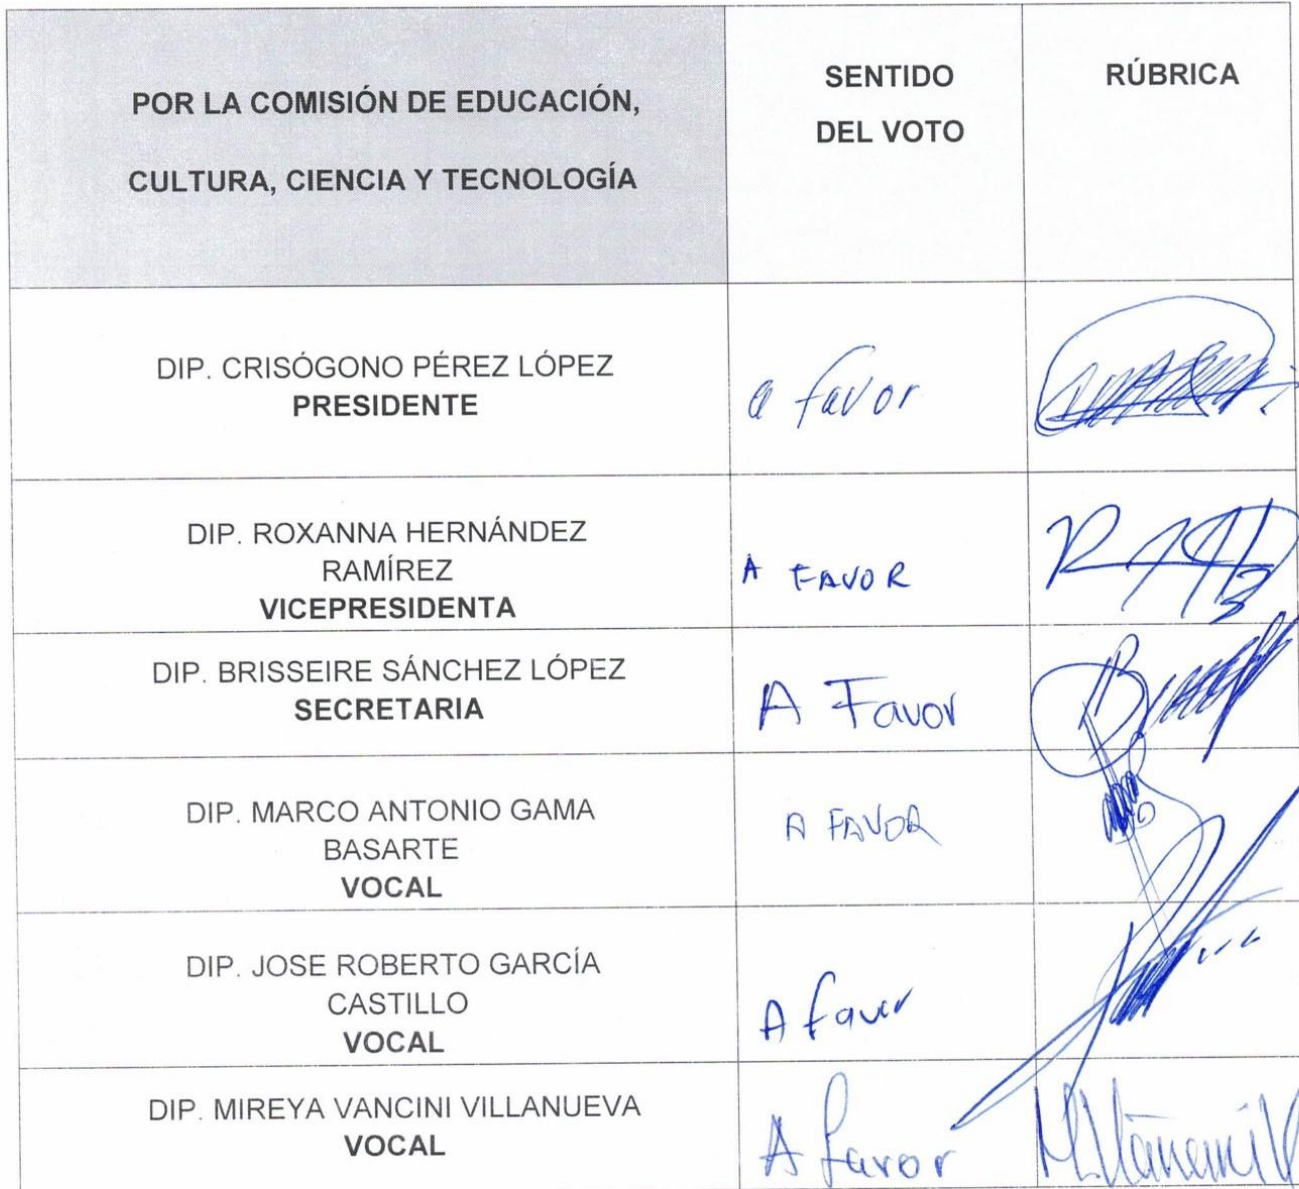 POR LA COMISIÓN DE EDUCACIÓN,
CULTURA, CIENCIA Y TECNOLOGÍA
SENTIDO
DEL VOTO
RÚBRICA
DIP. CRISÓGONO PÉREZ LÓPEZ
PRESIDENTE
a favor
DIP. ROXANNA HERNÁNDEZ
RAMÍREZ
VICEPRESIDENTA
A FAVOR
DIP. BRISSEIRE SÁNCHEZ LÓPEZ
SECRETARIA
A Favor
DIP. MARCO ANTONIO GAMA
BASARTE
VOCAL
A FAVOR
DIP. JOSE ROBERTO GARCÍA
CASTILLO
VOCAL
A favor
DIP. MIREYA VANCINI VILLANUEVA
VOCAL
A favor